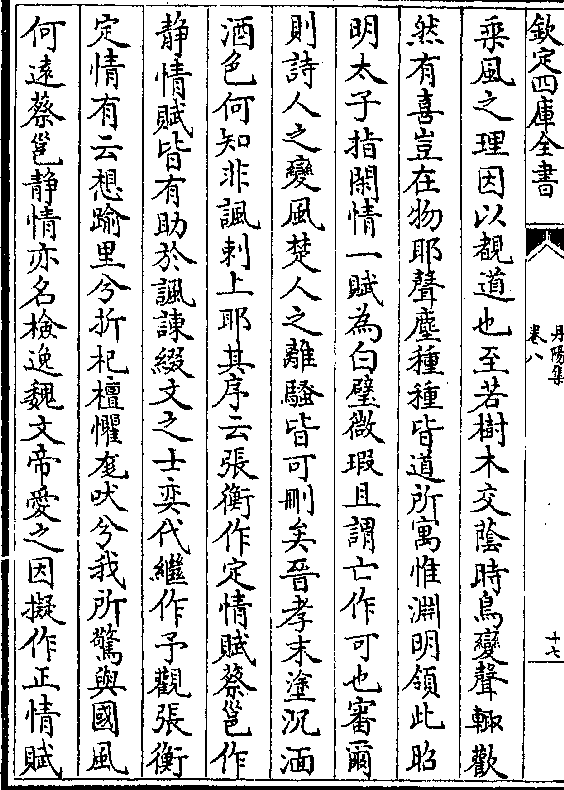 欽定四庫全書
丹陽集
卷八
十七
乘風之理因以覩道也至若樹木交蔭時鳥變聲輙歡
然有喜豈在物耶聲塵種種皆道所寓惟淵明領此昭
明太子指閑情一賦為白璧微瑕且謂亡作可也審爾
則詩人之變風楚人之離騷皆可刪矣晉孝末塗沉湎
酒色何知非諷刺上耶其序云張衡作定情賦蔡邕作
静情賦皆有助於諷諫綴文之士奕代繼作予觀張衡
定情有云想踰里兮折杞檀懼尨吠兮我所驚與國風
何遠蔡邕静情亦名檢逸魏文帝愛之因擬作正情賦